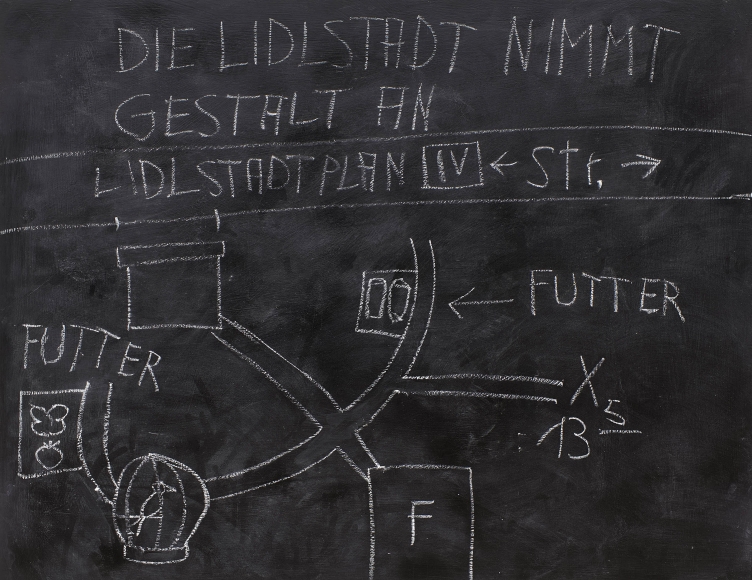 DIE LIDLSTADT NIMMT
GESTALT AN
LIDLSTADTPLAN IV ← Str. →
← FUTTER
FUTTER
X
: 13 5
F